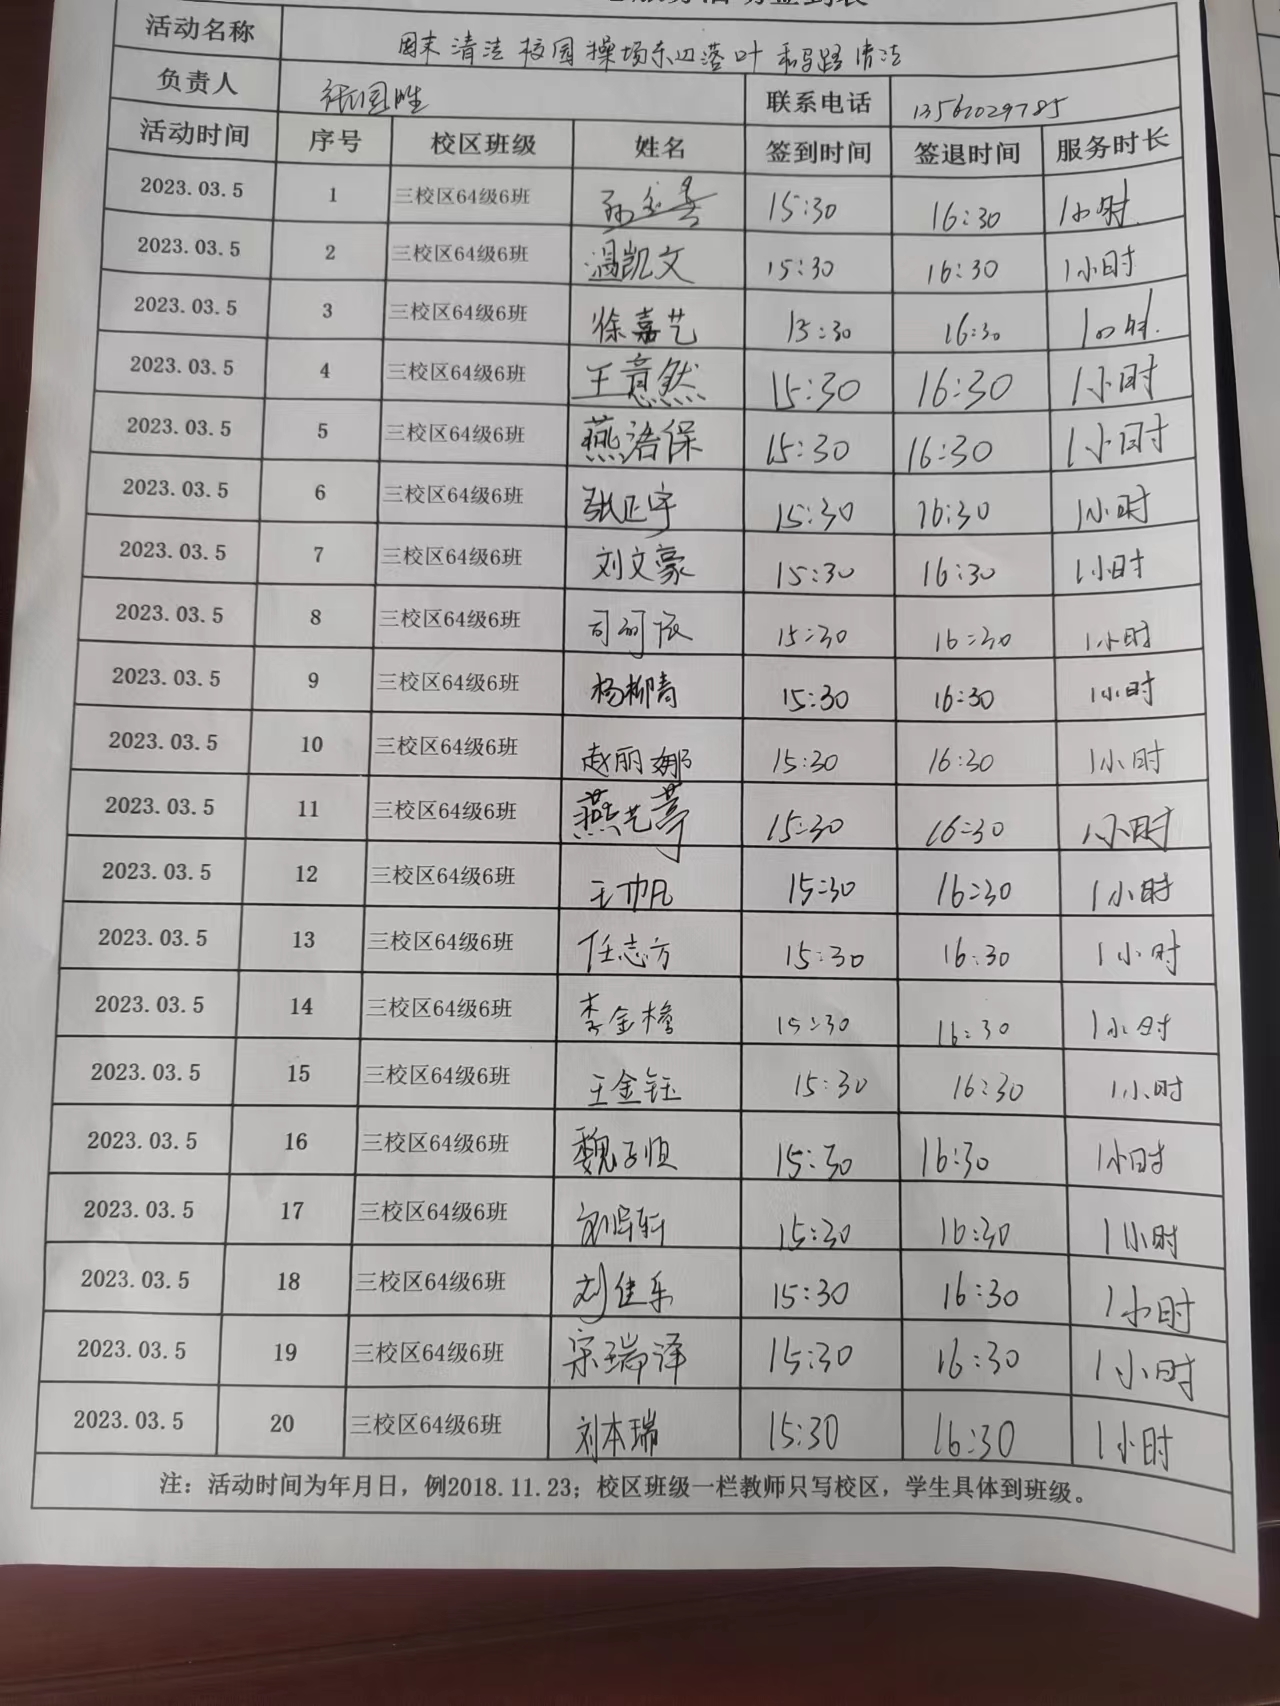 服务活动签到表
活动名称 周末清洁校园操场东边落叶和马路清洁
负责人 张国胜 联系电话 13562029785
活动时间 序号 校区班级 姓名 签到时间 签退时间 服务时长
2023.03.5 1 三校区64级6班 15:30 16:30 1小时
2023.03.5 2 三校区64级6班 温凯文 15:30 16:30 1小时
2023.03.5 3 三校区64级6班 徐嘉艺 15:30 16:30 1小时
2023.03.5 4 三校区64级6班 王意然 15:30 16:30 1小时
2023.03.5 5 三校区64级6班 燕浩保 15:30 16:30 1小时
2023.03.5 6 三校区64级6班 张正宇 15:30 16:30 1小时
2023.03.5 7 三校区64级6班 刘文豪 15:30 16:30 1小时
2023.03.5 8 三校区64级6班 15:30 16:30 1小时
2023.03.5 9 三校区64级6班 杨柳青 15:30 16:30 1小时
2023.03.5 10 三校区64级6班 赵丽娜 15:30 16:30 1小时
2023.03.5 11 三校区64级6班 燕艺萼 15:30 16:30 1小时
2023.03.5 12 三校区64级6班 15:30 16:30 1小时
2023.03.5 13 三校区64级6班 任志方 15:30 16:30 1小时
2023.03.5 14 三校区64级6班 15:30 16:30 1小时
2023.03.5 15 三校区64级6班 王金钰 15:30 16:30 1小时
2023.03.5 16 三校区64级6班 魏子恒 15:30 16:30 1小时
2023.03.5 17 三校区64级6班 15:30 16:30 1小时
2023.03.5 18 三校区64级6班 刘佳乐 15:30 16:30 1小时
2023.03.5 19 三校区64级6班 宋瑞泽 15:30 16:30 1小时
2023.03.5 20 三校区64级6班 刘本瑞 15:30 16:30 1小时
注：活动时间为年月日，例2018.11.23；校区班级一栏教师只写校区，学生具体到班级。